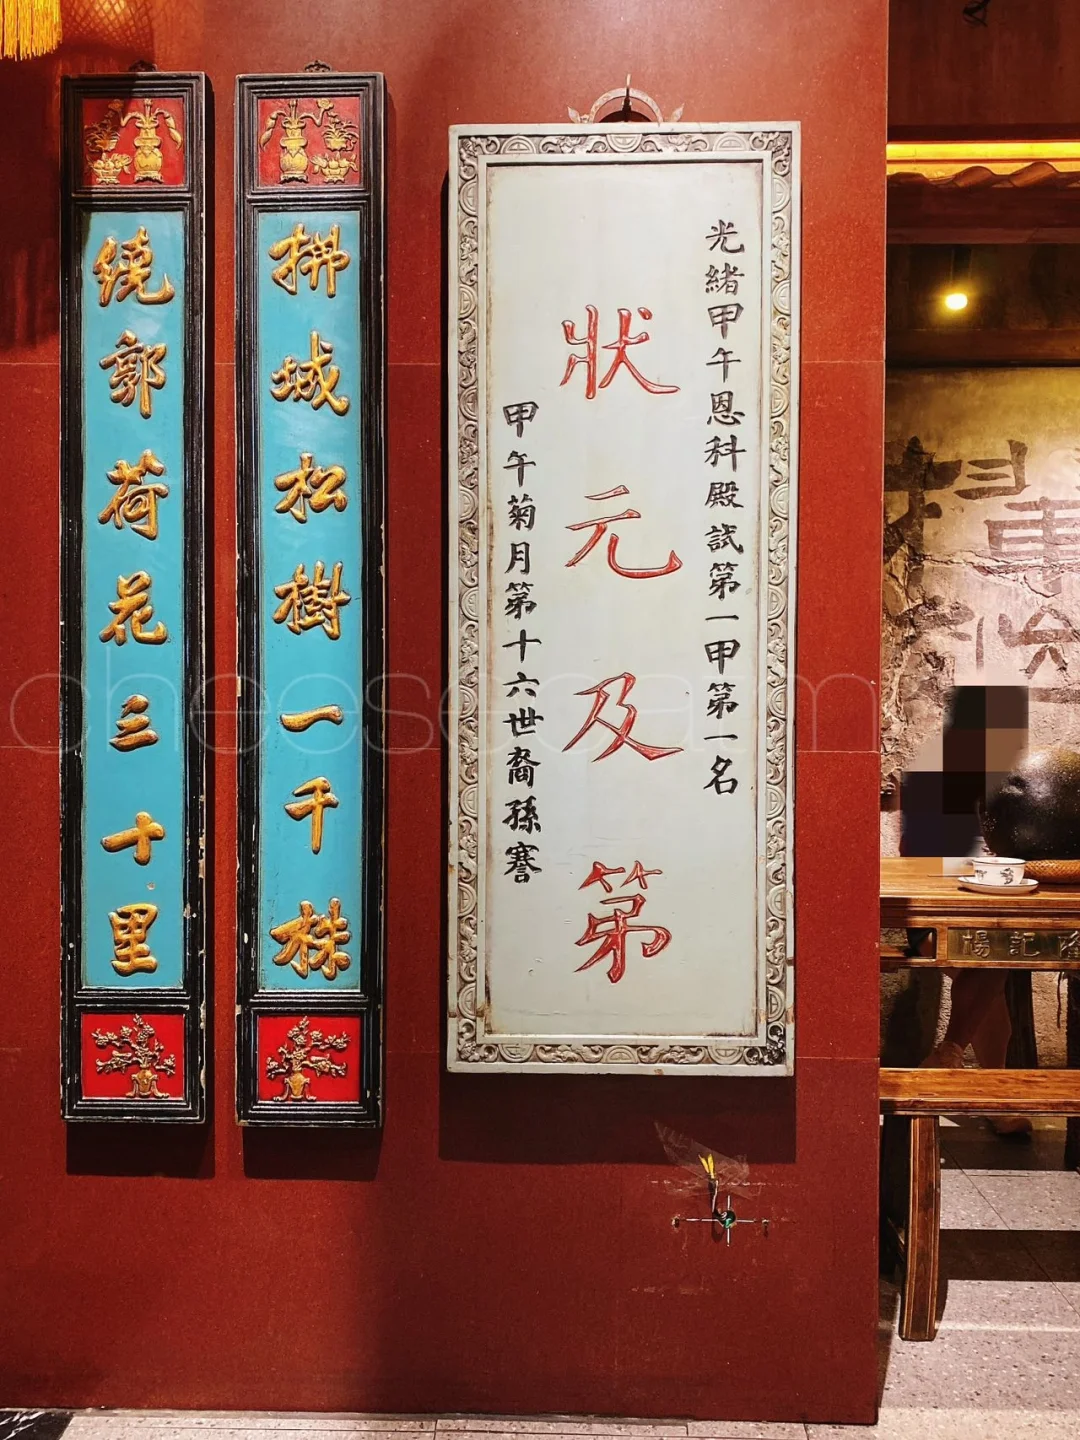 光緒甲午恩科殿試第一甲第一名
狀元及第
甲午菊月第十六世裔孫謇
拂城松樹一千株
繞郭荷花三十里
楊記隆
cheesecatm